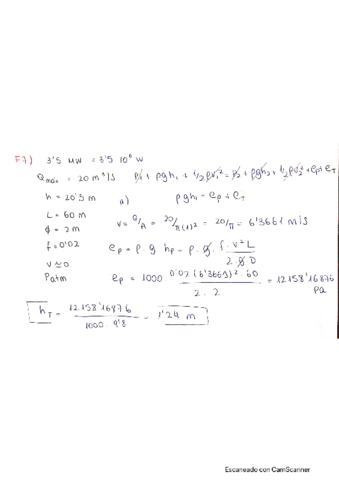 F7) 3'5 MW = 3'5 10⁶ W
Qmáx = 20 m³/s p₁ + ρgh₁ + 1/2 ρv₁² = p₂ + ρgh₂ + 1/2 ρv₂² + ep + eT
h = 20'5 m a) ρgh₁ = ep + eT
L = 60 m v = Q/A = 20/π(1)² = 20/π = 6'3661 m/s
φ = 2 m
f = 0'02 ep = ρ · g hp = ρ · g · f · v² L / 2 · g D
v ≃ 0
Patm ep = 1000 · 0'02 (6'3661)² · 60 / 2 · 2 = 12158'16876 Pa
hT = 12158'16876 / 1000 · 9'8 = 1'24 m
Escaneado con CamScanner